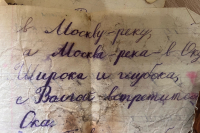 в Москву-реку,
а Москва-река в Оку
Широка и глубока,
с Волгой встретится
Ока.